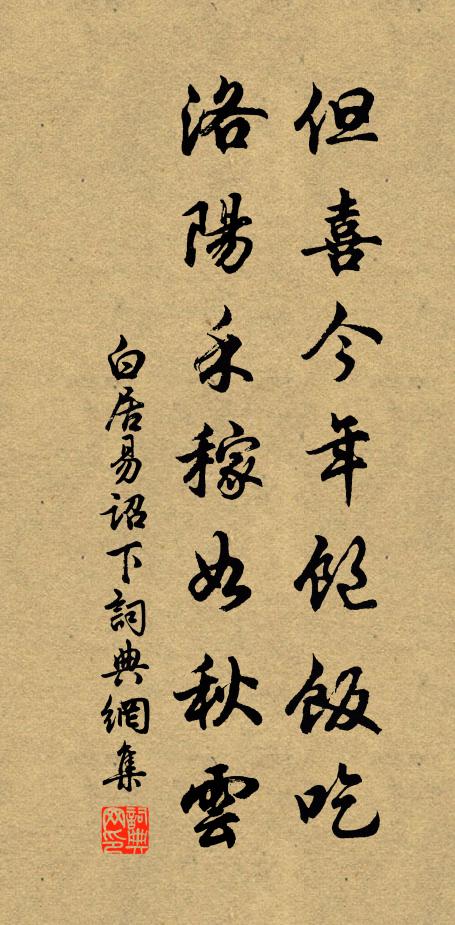 但喜今年飽飯吃
洛陽禾稼如秋雲
白居易詔下詞典網集
詞典網印